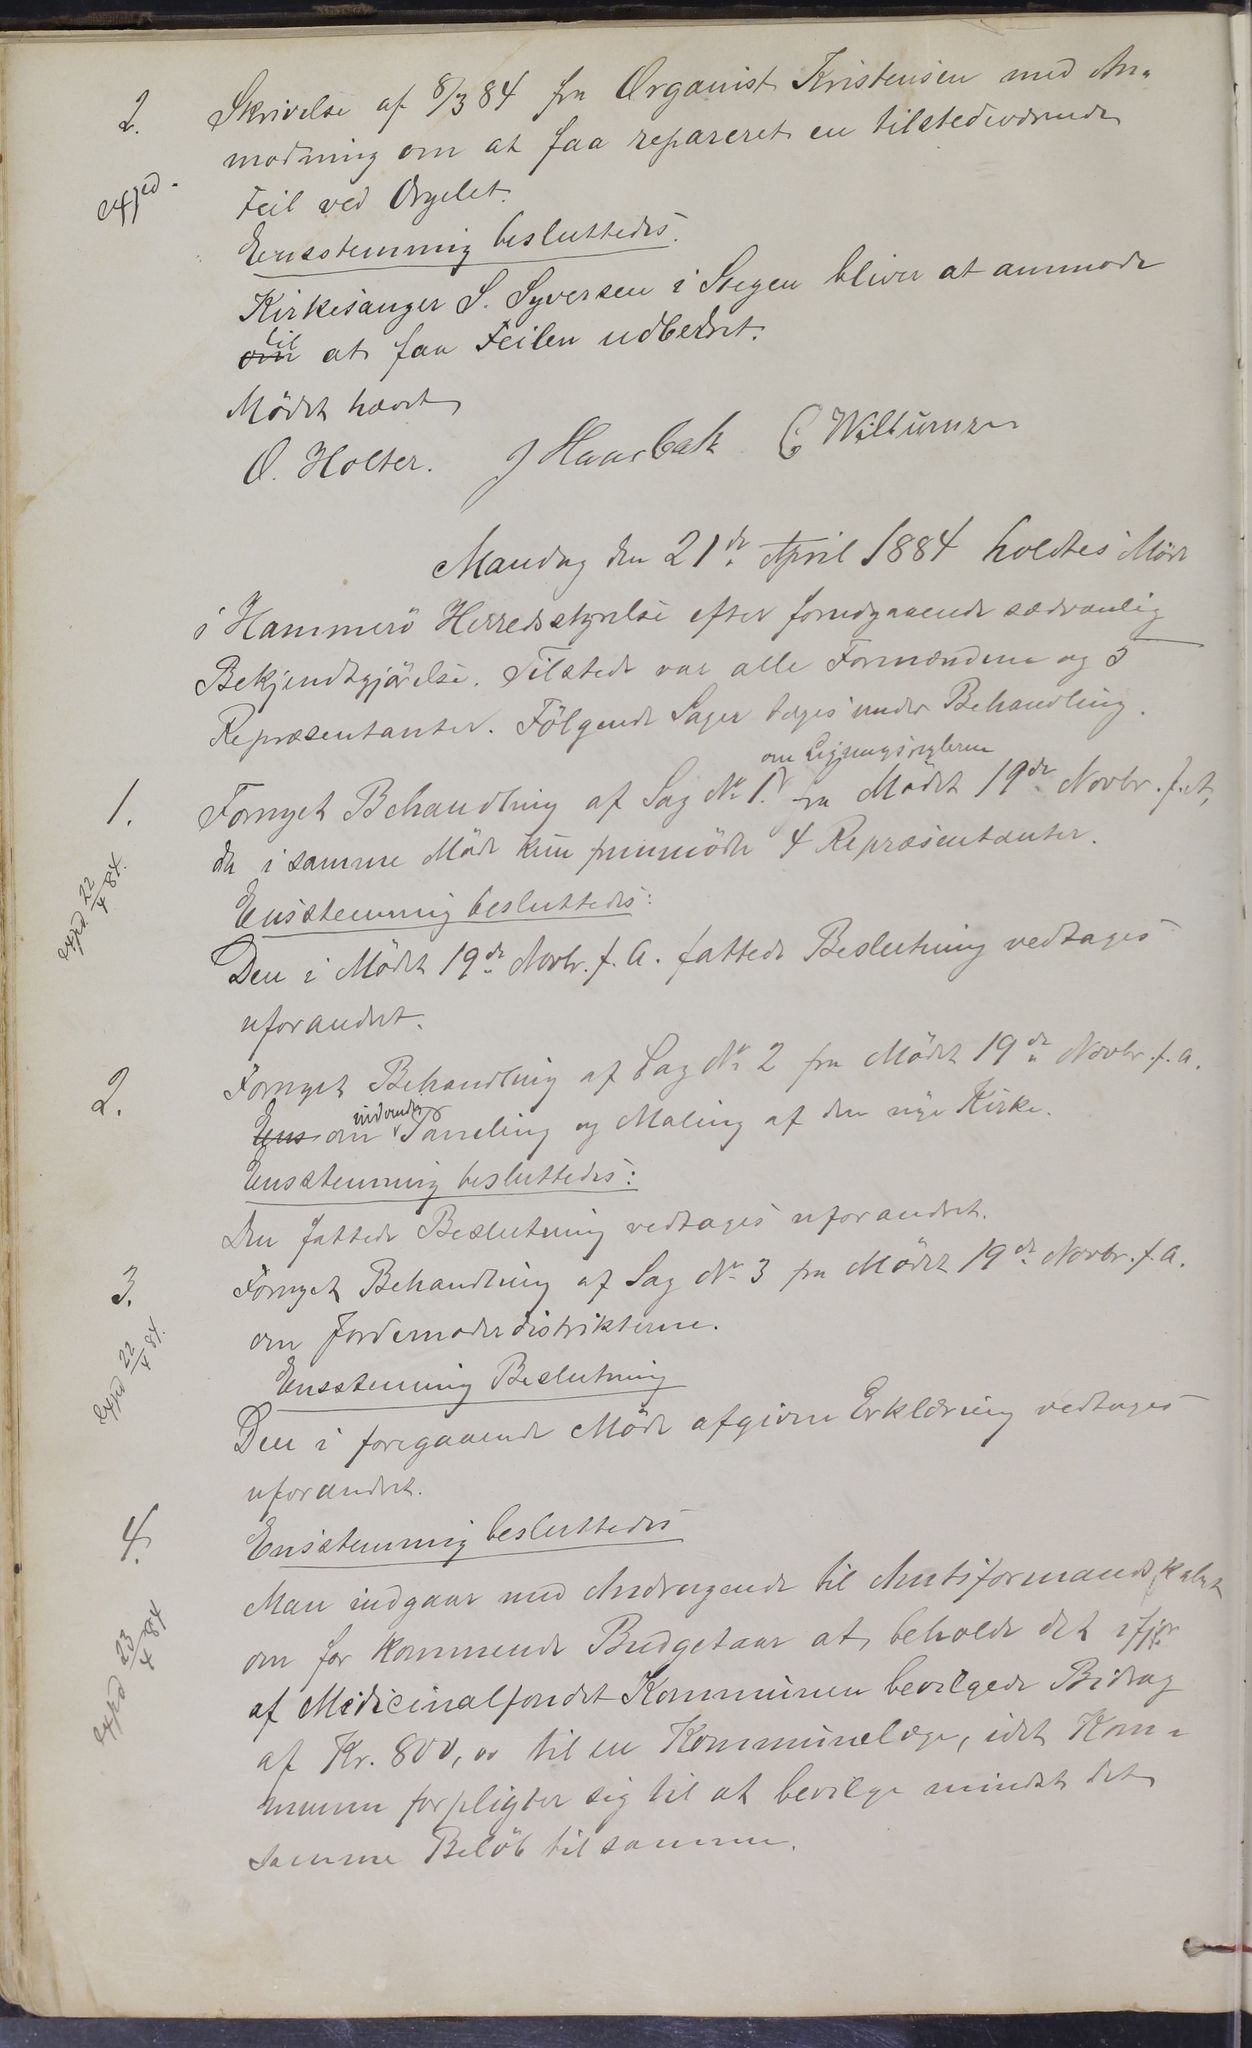 2. Skrivelse af 8/3 84 fra Organist Kristensen med An-
modning om at faa repareret en tilstedeværende
expd. Feil ved Orgelet.
Eensstemmig besluttedes.
Kirkesanger S. Syversen i Stegen bliver at anmode
til
om at faa Feilen udbedret.
Mödet hævet
O. Holter. J Haarbak
Mandag den 21de April 1884 holdtes Möde
i Hammerö Herredsstyrelse efter forudgaaende sædvanlig
Bekjendtgjörelse. Tilstede var alle Formændene og 5
Repræsentanter. Fölgende Sager toges under Behandling.
om Ligningsreglerne
1. Fornyet Behandling af Sag No 1. fra Mödet 19de Novbr. f. A,
da i samme Möde kun fremmödte 4 Repræsentanter.
expd 22/4 84.
Eensstemmig besluttedes:
Den i Mödet 19de Novbr. f. A. fattede Beslutning vedtages
uforandret.
2. Fornyet Behandling af Sag No 2 fra Mödet 19de Novbr. f. A.
indvendig
Eens om Paneling og Maling af den nye Kirke.
Eensstemmig besluttedes:
Den fattede Beslutning vedtages uforandret.
3. Fornyet Behandling af Sag No 3 fra Mödet 19de Novbr. f. A.
om Jordemoderdistrikterne.
expd 22/4 84.
Eensstemmig Beslutning
Den i foregaaende Möde afgivne Erklæring vedtages
uforandret.
4. Eensstemmig besluttedes
Man indgaar med Andragende til Amtsformandskabet
om for kommende Budgetaar at beholde det ifjor
expd 23/4 84
af Medicinalfondet Kommunen bevilgede Bidrag
af Kr. 800,00 til en Kommunelæge, idet Kom-
munen forpligter sig til at bevilge mindst det
samme Belöb til samme.